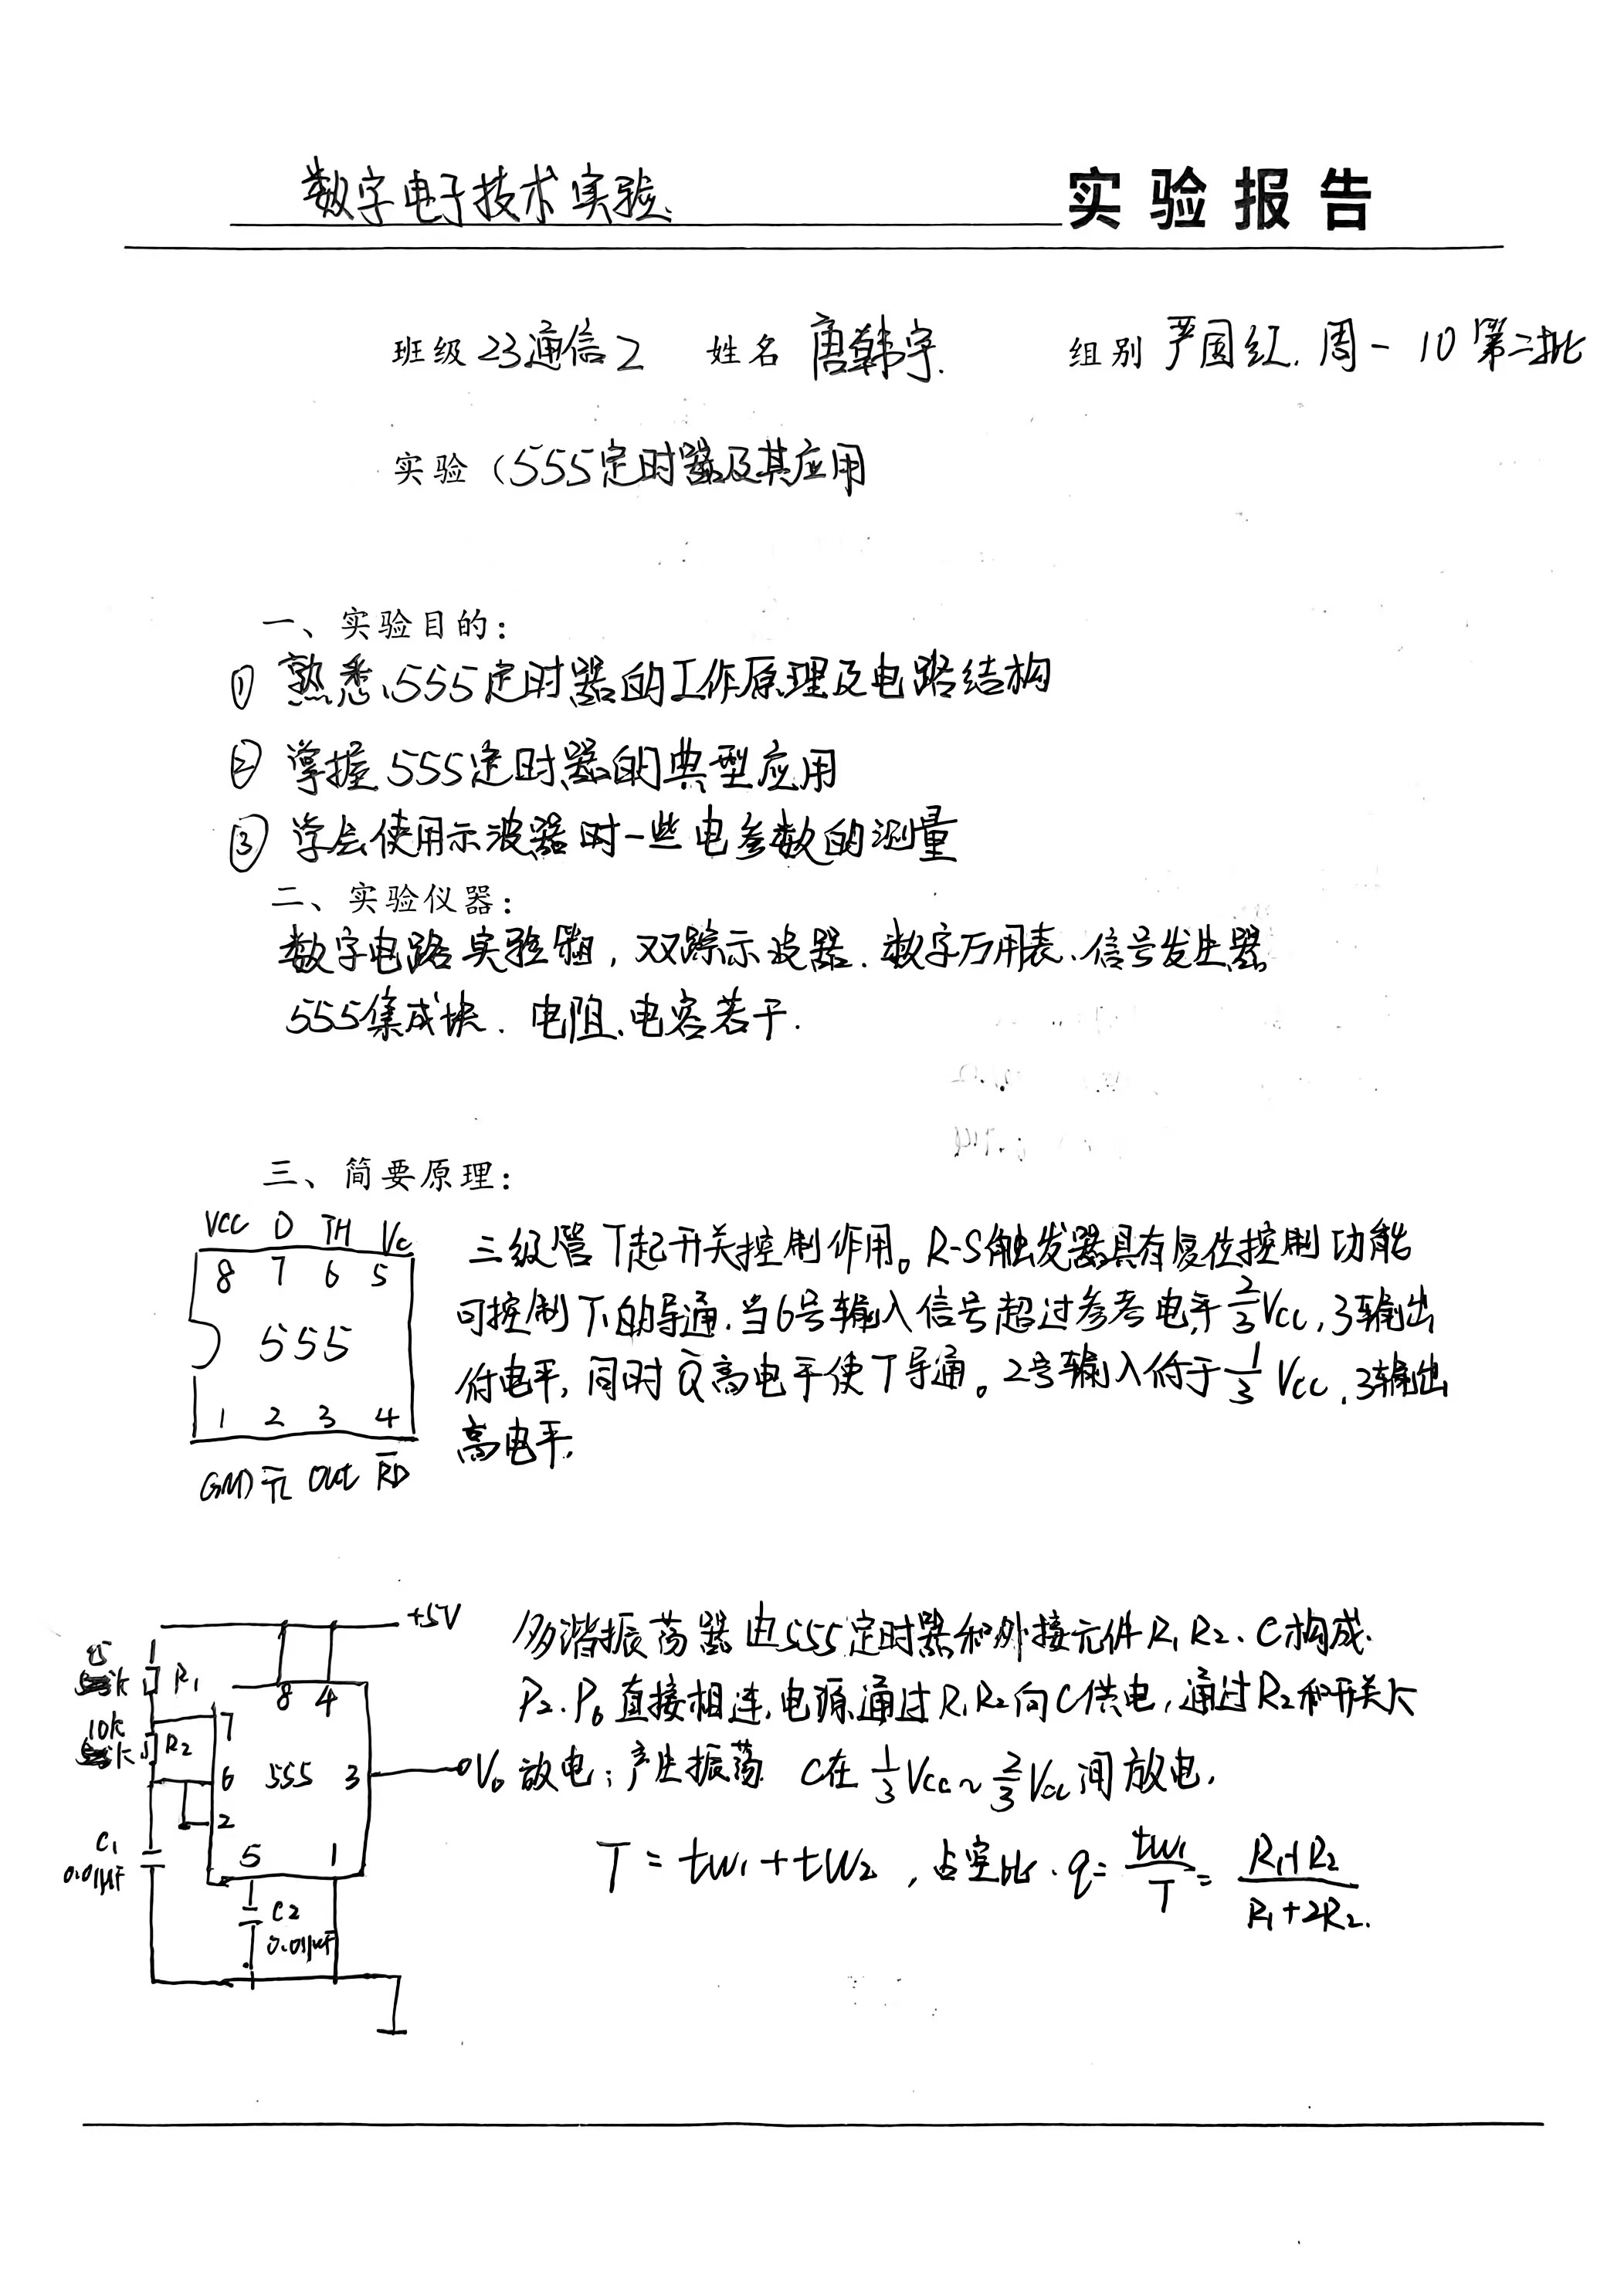 数字电子技术实验 实验报告
班级 23通信2 姓名 唐韩宇. 组别 严国红. 周一 10 第二批
实验(555定时器及其应用
一、实验目的:
① 熟悉555定时器的工作原理及电路结构
② 掌握555定时器的典型应用
③ 学会使用示波器时一些电参数的测量
二、实验仪器:
数字电路实验箱, 双踪示波器. 数字万用表、信号发生器
555集成块. 电阻、电容若干.
三、简要原理:
VCC D TH Vc
8 7 6 5
555
1 2 3 4
GND TL Out RD
三级管T起开关控制作用。R-S触发器具有复位控制功能
可控制T的导通. 当6号输入信号超过参考电平 2/3 Vcc, 3输出
付电平, 同时Q̅高电平使T导通。2号输入付于 1/3 Vcc, 3输出
高电平.
+5V
15
k R1
8 4
10k
k R2
7
6 555 3 Vo
2
C1
0.01μF
5 1
C2
0.01μF
多谐振荡器由555定时器和外接元件R1 R2、C构成.
P2. P6直接相连, 电源通过R1 R2向C供电, 通过R2和开关K
放电; 产生振荡 C在 1/3 Vcc ~ 2/3 Vcc 间放电.
T = tw1 + tw2 , 占空比. q = tw1/T = (R1+R2)/(R1+2R2).